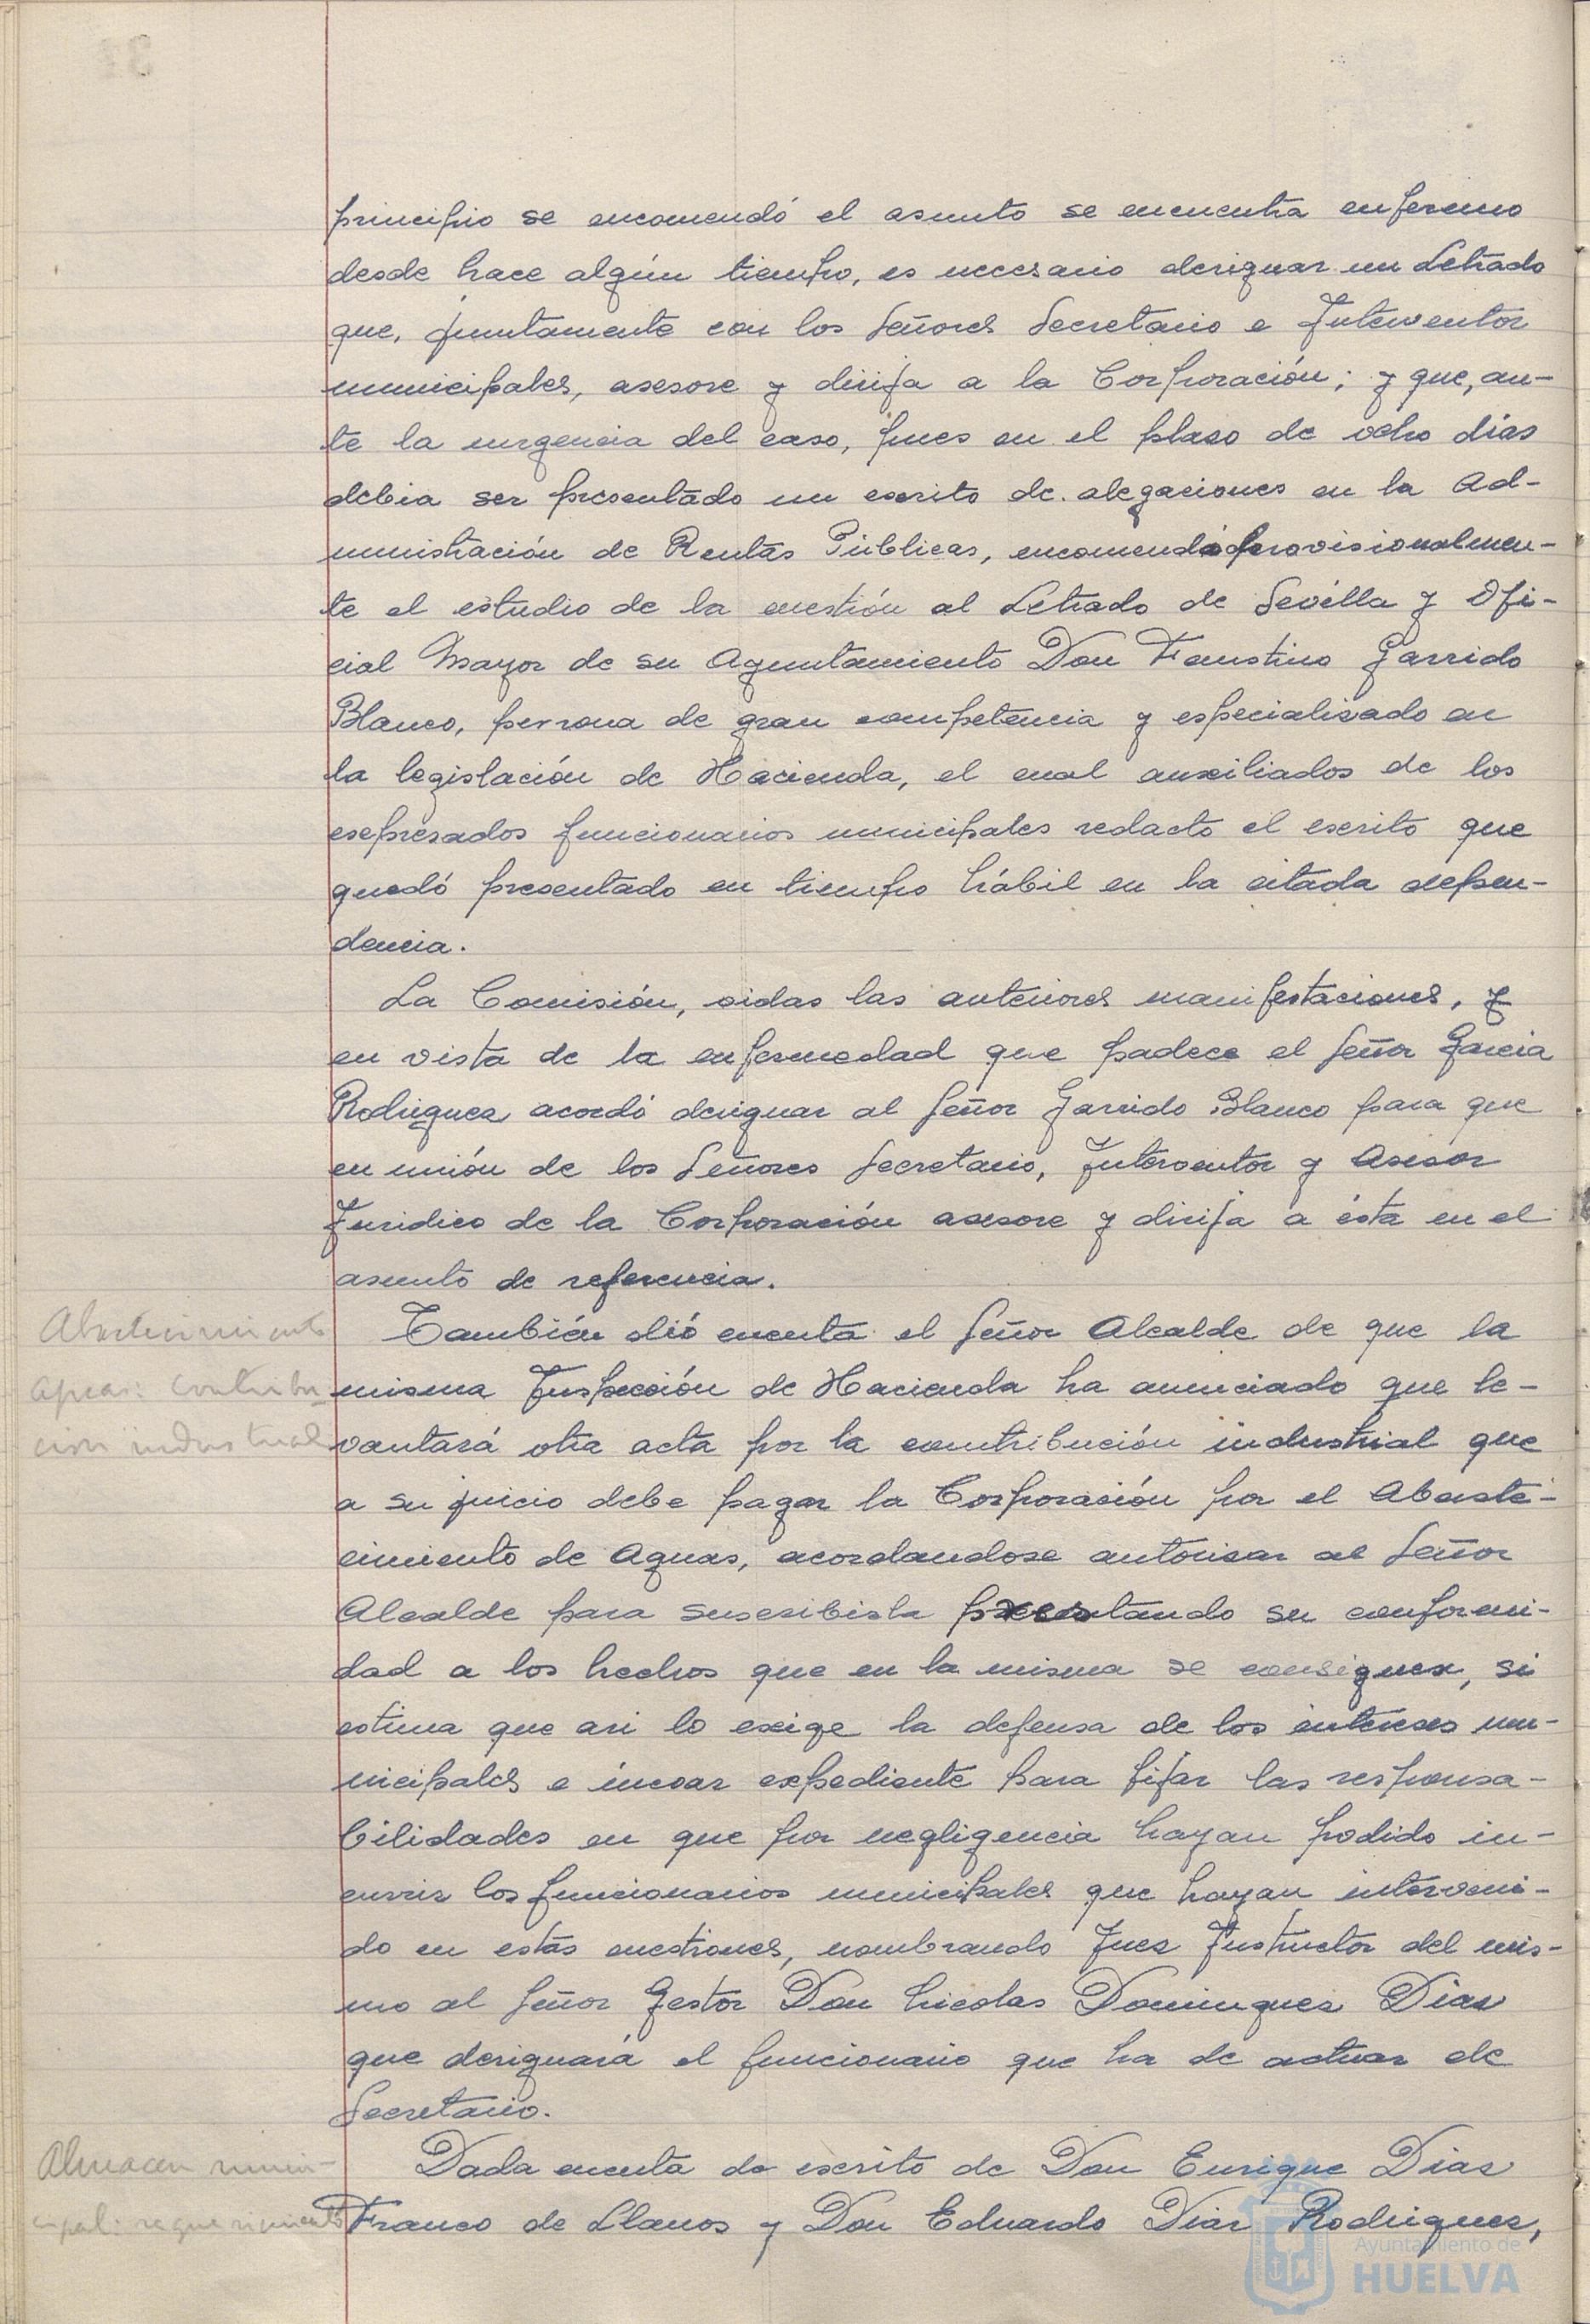 principio se encomendó el asunto se encuentra enfermo
desde hace algún tiempo, es necesario designar un Letrado
que, juntamente con los Señores Secretario e Interventor
municipales, asesore y dirija a la Corporación; y que, an-
te la urgencia del caso, pues en el plazo de ocho días
debia ser presentado un escrito de alegaciones en la Ad-
ministración de Rentas Públicas, encomendó provisionalmen-
te el estudio de la cuestión al Letrado de Sevilla y Ofi-
cial Mayor de su Ayuntamiento Don Faustino Garrido
Blanco, persona de gran competencia y especializado en
la legislación de Hacienda, el cual auxiliados de los
expresados funcionarios municipales redacto el escrito que
quedó presentado en tiempo hábil en la citada depen-
dencia.
La Comisión, oidas las anteriores manifestaciones, y
en vista de la enfermedad que padece el Señor Garcia
Rodriguez acordó designar al Señor Garrido Blanco para que
en unión de los Señores Secretario, Interventor y Asesor
Juridico de la Corporación asesore y dirija a ésta en el
asunto de referencia.
Abastecimiento
aguas: contribu
ción industrial
También dió cuenta el Señor Alcalde de que la
misma Inspección de Hacienda ha anunciado que le-
vantará otra acta por la contribución industrial que
a su juicio debe pagar la Corporación por el Abaste-
cimiento de Aguas, acordandose autorizar al Señor
Alcalde para suscribirla prestando su conformi-
dad a los hechos que en la misma se consignen, si
estima que asi lo exige la defensa de los intereses mu-
nicipales e incoar expediente para fijar las responsa-
bilidades en que por negligencia hayan podido in-
currir los funcionarios municipales que hayan interveni-
do en estas cuestiones, nombrando Juez Instructor del mis-
mo al Señor Gestor Don Nicolas Dominguez Diaz
que designará el funcionario que ha de actuar de
Secretario.
Almacen muni-
cipal: requerimiento
Dada cuenta de escrito de Don Enrique Diaz
Franco de Llanos y Don Eduardo Diaz Rodriguez,
Ayuntamiento de
HUELVA